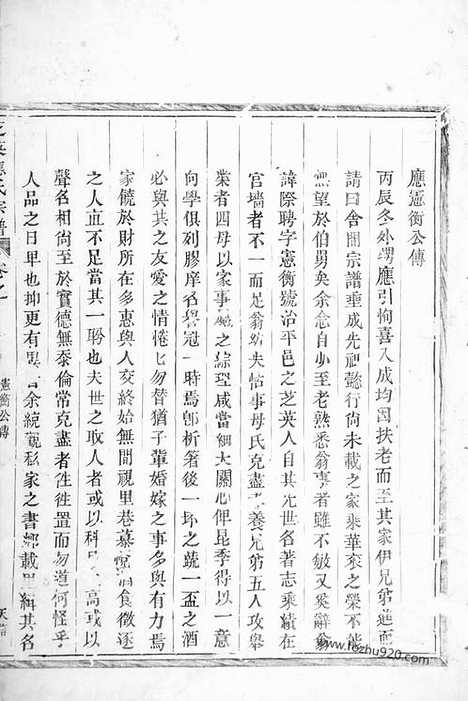 應憲衡公傳
丙辰冬外甥應引恂喜入成均因扶老而至其家伊兄弟進而
請曰合閤宗譜垂成先祖懿行尚未載之家乘華袞之榮不能
無望於伯舅矣余念自少至老熟悉翁事者雖不敏又奚辭翁
諱際聘字憲衡號治平邑之芝英人自其先世名著志乘績在
宮墻者不一而足翁幼失怙事母氏克盡孝養兄弟五人攻舉
業者四母以家事屬之綜理咸當細大關心俾昆季得以一意
向學俱列膠庠名譽冠一時焉卽析箸後一坏之蔬一盃之酒
必與共之友愛之情惓七勿替猶子輩婚嫁之事多與有力焉
家饒於財所在多惠與人交終始無間視里巷慕 食微逐
之人直不足當其一盼也夫世之取人者或以科 高或以
聲名相尚至於實德無忝倫常克盡者往往置而勿道何怪乎
人品之日卑也抑更有 余統觀私家之書 載 輯其名
芝英應氏宗譜
卷之
憲衡公傳
www.fozhu920.com